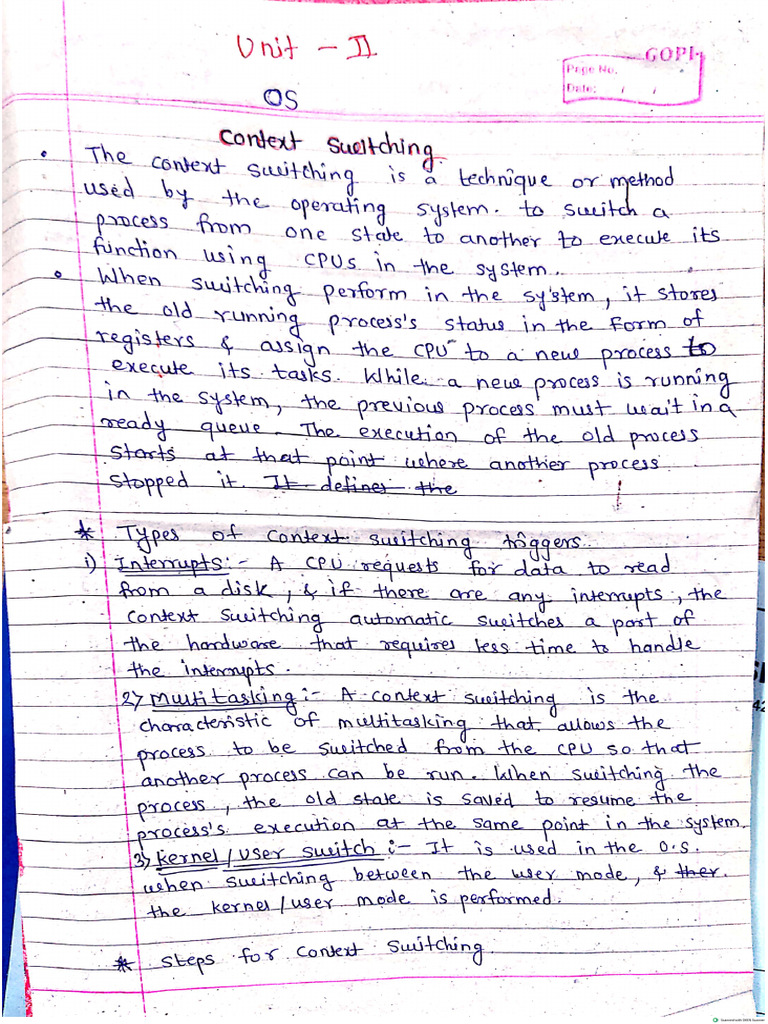 Unit - II
GOPI
Page No.
Date: / /
OS
Context Switching
• The context switching is a technique or method
used by the operating system. to switch a
process from one state to another to execute its
function using CPUs in the system.
• When switching perform in the system, it stores
the old running process's status in the form of
registers & assign the CPU to a new process to
execute its tasks. While a new process is running
in the system, the previous process must wait in a
ready queue. The execution of the old process
starts at that point where another process
stopped it. It defines the
* Types of context switching triggers
i) Interrupts:- A CPU requests for data to read
from a disk, & if there are any interrupts, the
context switching automatic switches a part of
the hardware that requires less time to handle
the interrupts.
2) Multitasking:- A context switching is the
characteristic of multitasking that allows the
process to be switched from the CPU so that
another process can be run. When switching the
process, the old state is saved to resume the
process's execution at the same point in the system.
3) Kernel/User switch:- It is used in the O.S.
when switching between the user mode, & ther.
the kernel/user mode is performed.
* Steps for Context Switching